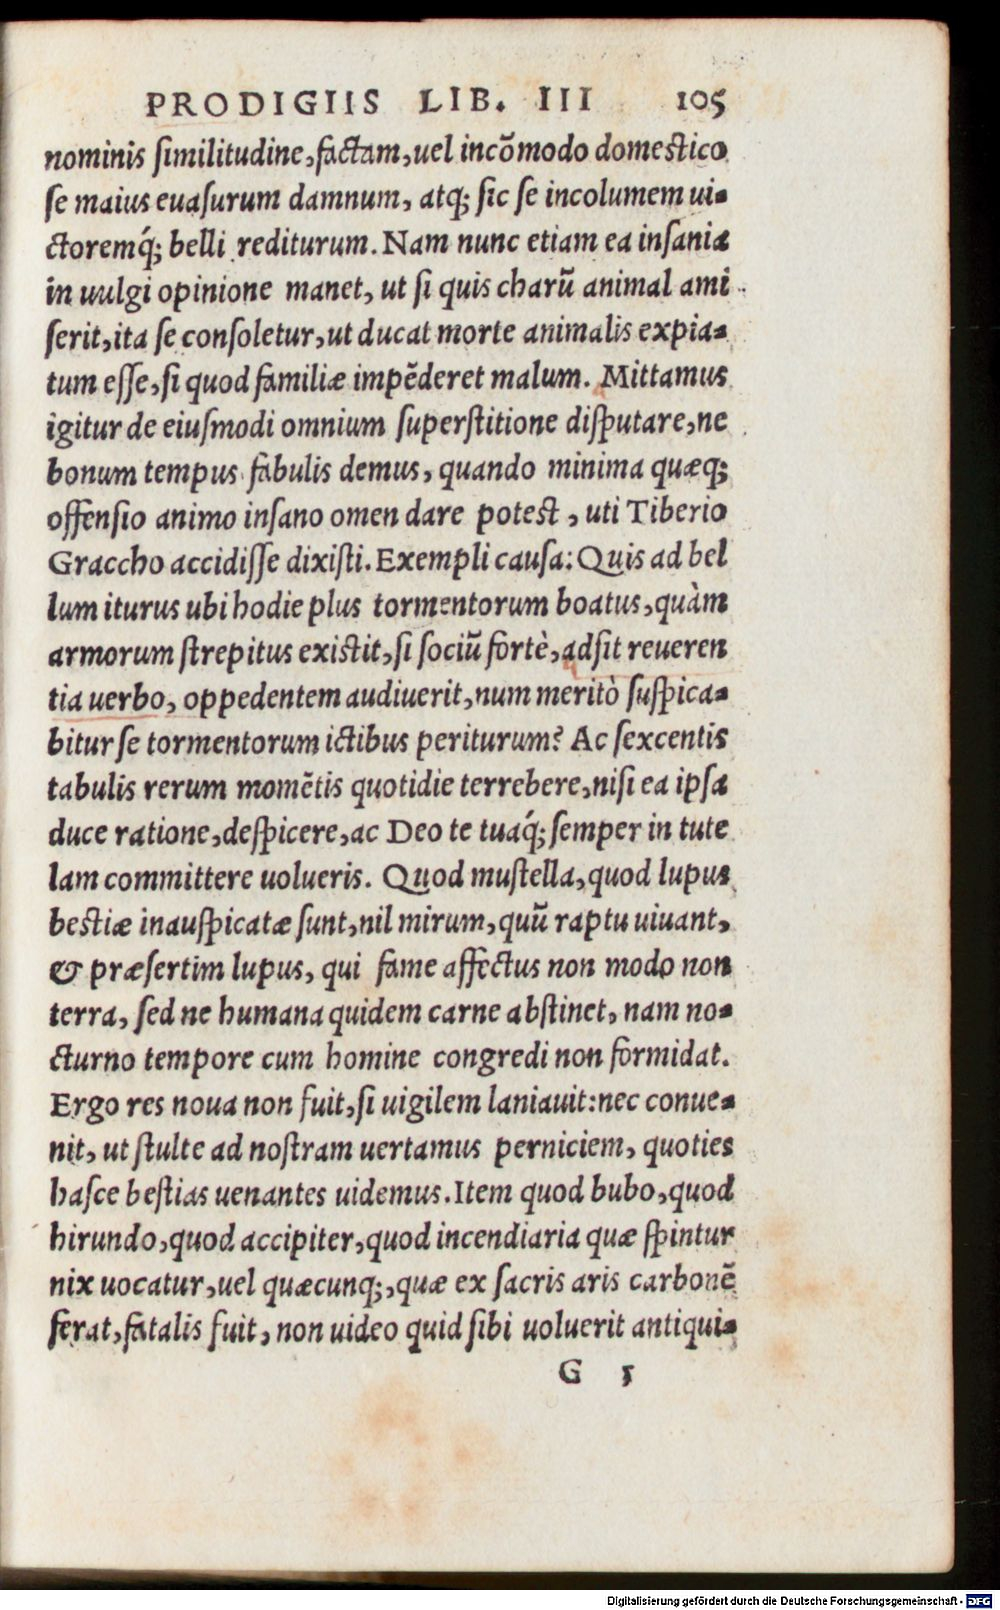 PRODIGIIS LIB. III 105
nominis ſimilitudine, factam, uel incõmodo domeſtico
ſe maius euaſurum damnum, atq; ſic ſe incolumem ui-
ctoremq́; belli rediturum. Nam nunc etiam ea inſania
in uulgi opinione manet, ut ſi quis charũ animal ami
ſerit, ita ſe conſoletur, ut ducat morte animalis expia-
tum eſſe, ſi quod familiæ impẽderet malum. Mittamus
igitur de eiuſmodi omnium ſuperſtitione diſputare, ne
bonum tempus fabulis demus, quando minima quæq;
offenſio animo inſano omen dare poteſt, uti Tiberio
Graccho accidiſſe dixiſti. Exempli cauſa: Quis ad bel
lum iturus ubi hodie plus tormentorum boatus, quàm
armorum ſtrepitus exiſtit, ſi ſociũ fortè, adſit reueren
tia uerbo, oppedentem audiuerit, num meritò ſuſpica-
bitur ſe tormentorum ictibus periturum? Ac ſexcentis
tabulis rerum momẽtis quotidie terrebere, niſi ea ipſa
duce ratione, deſpicere, ac Deo te tuaq́; ſemper in tute
lam committere uolueris. Quod muſtella, quod lupus
beſtiæ inauſpicatæ ſunt, nil mirum, quũ raptu uiuant,
& præſertim lupus, qui fame affectus non modo non
terra, ſed ne humana quidem carne abſtinet, nam no-
cturno tempore cum homine congredi non formidat.
Ergo res noua non fuit, ſi uigilem laniauit: nec conue-
nit, ut ſtulte ad noſtram uertamus perniciem, quoties
haſce beſtias uenantes uidemus. Item quod bubo, quod
hirundo, quod accipiter, quod incendiaria quæ ſpintur
nix uocatur, uel quæcunq;, quæ ex ſacris aris carbonẽ
ferat, fatalis fuit, non uideo quid ſibi uoluerit antiqui-
G 5
Digitalisierung gefördert durch die Deutsche Forschungsgemeinschaft - DFG